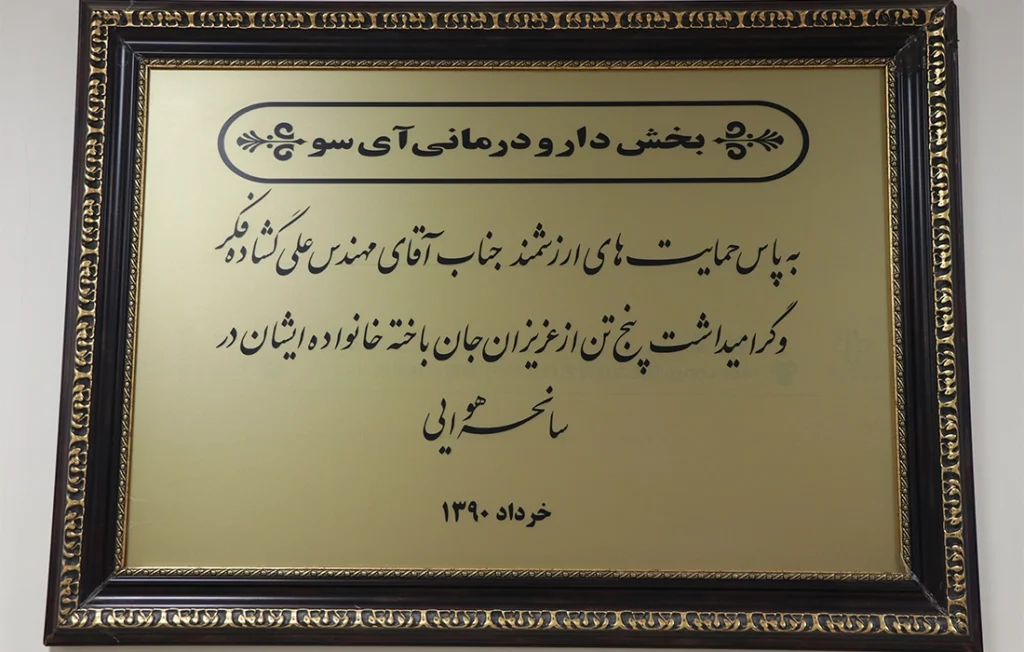 بخش دارو درمانی آی سو
به پاس حمایت های ارزشمند جناب آقای مهندس علی گشاده فکر
و گرامیداشت پنج تن از عزیزان جان باخته خانواده ایشان در
سانحه هوایی
خرداد ۱۳۹۰